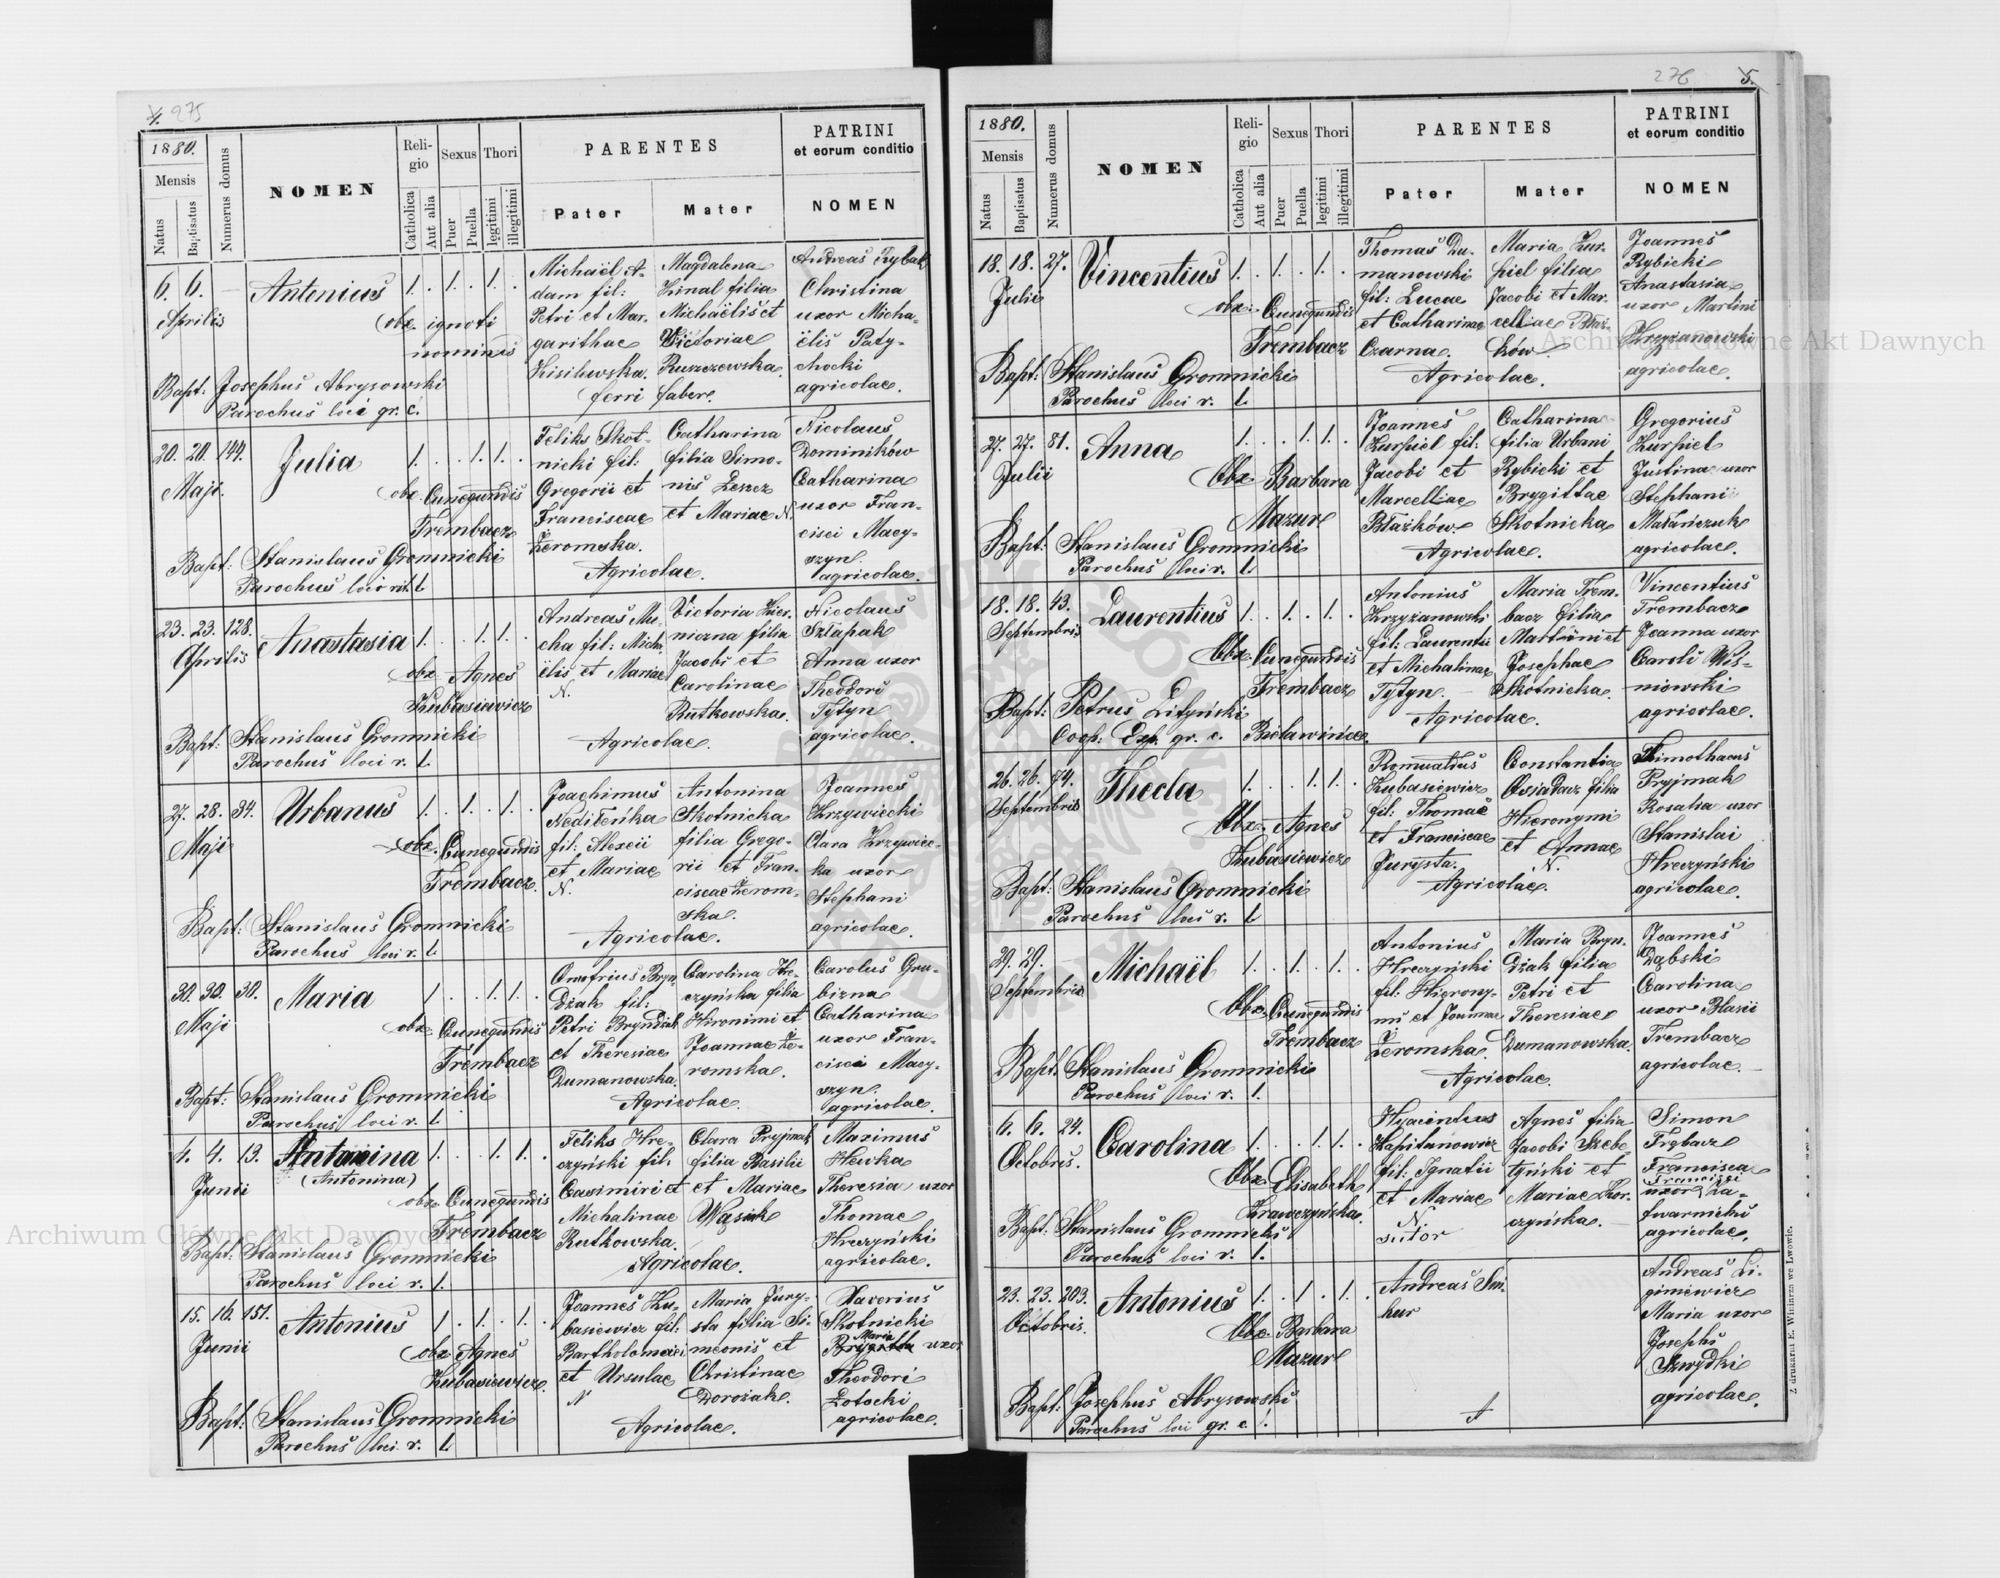 4. 275
1880.
Mensis
Natus
Baptisatus
Numerus domus
NOMEN
Religio
Catholica
Aut alia
Sexus
Puer
Puella
Thori
legitimi
illegitimi
PARENTES
Pater
Mater
PATRINI
et eorum conditio
NOMEN
6. 6. –
Aprilis
Antonius
1. . 1. . 1. .
obx. ignoti
nominis
Bapt: Josephus Abrysowski
Parochus loci gr. c.
Michaël A-
dam fil:
Petri et Mar-
garithae
Kisilewska.
Magdalena
Kinal filia
Michaëlis et
Victoriae
Ruszczewska.
ferri faber.
Andreas Rybak
Christina
uxor Micha-
ëlis Paty-
chocki
agricolae.
20. 20. 144.
Maji.
Julia
1. . . 1. 1. .
obx. Cunegundis
Trembacz
Bapt: Stanislaus Gromnicki
Parochus loci rit. l.
Feliks Skot-
nicki fil:
Gregorii et
Franciscae
Żeromska.
Catharina
filia Simo-
nis Leszcz
et Mariae N.
Agricolae.
Nicolaus
Dominików
Catharina
uxor Fran-
cisci Macy-
szyn
agricolae.
23. 23. 128.
Aprilis
Anastasia
1. . . 1. 1. .
obx. Agnes
Kubasiewicz
Bapt: Stanislaus Gromnicki
Parochus loci r. l.
Andreas Mu-
cha fil: Micha-
ëlis et Mariae
N.
Victoria Kier-
niczna filia
Jacobi et
Carolinae
Rutkowska.
Agricolae.
Nicolaus
Szlapak
Anna uxor
Theodori
Tytyn
agricolae.
27. 28. 84.
Maji
Urbanus
1. . 1. . 1. .
obx. Cunegundis
Trembacz.
Bapt: Stanislaus Gromnicki
Parochus loci r. l.
Joachimus
Nedileńka
fil: Alexii
et Mariae
N.
Antonina
Skotnicka
filia Grego-
rii et Fran-
ciscae Żerom-
ska.
Agricolae.
Joannes
Krzywiecki
Clara Krzywiec-
ka uxor
Stephani
agricolae.
30. 30. 30.
Maji
Maria
1. . . 1. 1. .
obx. Cunegundis
Trembacz
Bapt: Stanislaus Gromnicki
Parochus loci r. l.
Onufrius Bryn-
dżak fil:
Petri Bryndżak
et Theresiae
Dumanowska.
Carolina Hre-
czyńska filia
Hironimi et
Joannae Że-
romska.
Agricolae.
Carolus Gru-
bizna
Catharina
uxor Fran-
cisci Macy-
szyn.
agricolae.
4. 4. 13.
Junii
Antonina
(Antonina)
1. . . 1. 1. .
obx. Cunegundis
Trembacz
Bapt: Stanislaus Gromnicki
Parochus loci r. l.
Feliks Hre-
czyński fil:
Casimiri et
Michalinae
Rutkowska.
Clara Pryjmak
filia Basilii
et Mariae
Wąsik
Agricolae.
Maximus
Hewka
Theresia uxor
Thomae
Hreczyński
agricolae.
15. 16. 151.
Junii
Antonius
1. . 1. . 1. .
obx. Agnes
Kubasiewicz.
Bapt: Stanislaus Gromnicki
Parochus loci r. l.
Joannes Ku-
basiewicz fil:
Bartholomaei
et Ursulae
N
Maria Jury-
sta filia Si-
meonis et
Christinae
Dorożak.
Agricolae.
Xaverius
Skotnicki
Maria
Brygitta uxor
Theodori
Łotocki
agricolae.
276 5.
1880.
Mensis
Natus
Baptisatus
Numerus domus
NOMEN
Religio
Catholica
Aut alia
Sexus
Puer
Puella
Thori
legitimi
illegitimi
PARENTES
Pater
Mater
PATRINI
et eorum conditio
NOMEN
18. 18. 27.
Julii
Vincentius
1. . 1. . 1. .
obx: Cunegundis
Trembacz
Bapt: Stanislaus Gromnicki
Parochus loci r. l.
Thomas Du-
manowski
fil: Lucae
et Catharinae
Czarna.
Maria Kur-
piel filia
Jacobi et Mar-
celliae Błaż-
ków
Agricolae.
Joannes
Rybicki
Anastasia
uxor Martini
Krzyżanowski
agricolae.
27. 27. 81.
Julii
Anna
1. . . 1. 1. .
Obx. Barbara
Mazur
Bapt: Stanislaus Gromnicki
Parochus loci r. l.
Joannes
Kurpiel fil:
Jacobi et
Marcelliae
Błażków
Catharina
filia Urbani
Rybicki et
Brygittae
Skotnicka
Agricolae.
Gregorius
Kurpiel
Justina uxor
Stephani
Małańczuk
agricolae.
18. 18. 43.
Septembris
Laurentius
1. . 1. . 1. .
Obx. Cunegundis
Trembacz
Bapt: Petrus Lityński
Coop: Exp. gr. c. Bieławińce.
Antonius
Krzyżanowski
fil: Laurentii
et Michalinae
Tytyn.
Maria Trem-
bacz filia
Martini et
Josephae
Skotnicka.
Agricolae.
Vincentius
Trembacz
Joanna uxor
Caroli Wis-
niowski
agricolae.
26. 26. 74.
Septembris
Thecla
1. . . 1. 1. .
Obx. Agnes
Kubasiewicz
Bapt: Stanislaus Gromnicki
Parochus loci r. l.
Romualdus
Kubasiewicz
fil: Thomae
et Franciscae
Jurysta.
Constantia
Osiadacz filia
Hieronymi
et Annae
N.
Agricolae.
Thimothaeus
Pryjmak
Rosalia uxor
Stanislai
Hreczyński
agricolae.
29. 29. –
Septembris
Michaël
1. . 1. . 1. .
Obx. Cunegundis
Trembacz
Bapt: Stanislaus Gromnicki
Parochus loci r. l.
Antonius
Hreczyński
fil: Hierony-
mi et Joannae
Żeromska.
Maria Bryn-
dżak filia
Petri et
Theresiae
Dumanowska.
Agricolae.
Joannes
Dąbski
Carolina
uxor Blasii
Trembacz
agricolae.
6. 6. 24.
Octobris.
Carolina
1. . . 1. 1. .
Obx. Elisabeth
Krawczyńska.
Bapt: Stanislaus Gromnicki
Parochus loci r. l.
Hyacinthus
Kapitanowicz
fil: Ignatii
et Mariae
N.
sutor
Agnes filia
Jacobi Szebe-
tyński et
Mariae Hor-
czyńska.
Simon
Trębacz
Francisca
Francisci
uxor Za-
fwarnicki
agricolae.
23. 23. 203.
Octobris.
Antonius
1. . 1. . 1. .
Obx. Barbara
Mazur
Bapt: Josephus Abrysowski
Parochus loci gr. c.
Andreas Smi-
kur
Andreas Li-
giniewicz
Maria uxor
Josephi
Szwydki
agricolae.
Z drukarni E. Winiarza we Lwowie.
Archiwum Główne Akt Dawnych
Archiwum Główne Akt Dawnych